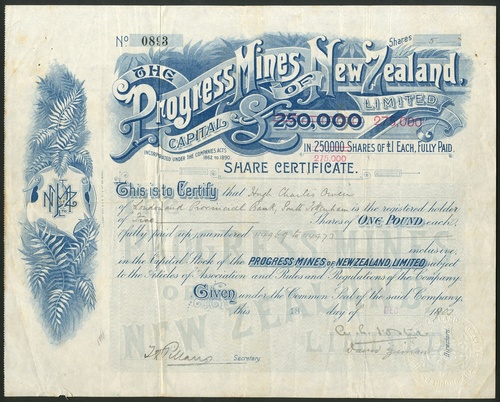 No 0893
Shares 5
THE
Progress Mines OF New Zealand,
LIMITED
CAPITAL £ 250,000 275,000
INCORPORATED UNDER THE COMPANIES ACTS 1862 TO 1890.
IN 250,000 SHARES OF £1 EACH, FULLY PAID.
275,000
SHARE CERTIFICATE.
This is to Certify that Hugh Charles
of London and Provincial Bank, South is the registered holder
of Five Shares of ONE POUND each,
fully paid up, numbered to
inclusive,
in the Capital Stock of the PROGRESS MINES, OF NEW ZEALAND, LIMITED, subject
to the Articles of Association and Rules and Regulations of the Company.
Given under the Common Seal of the said Company,
this 18 day of
Secretary.
David